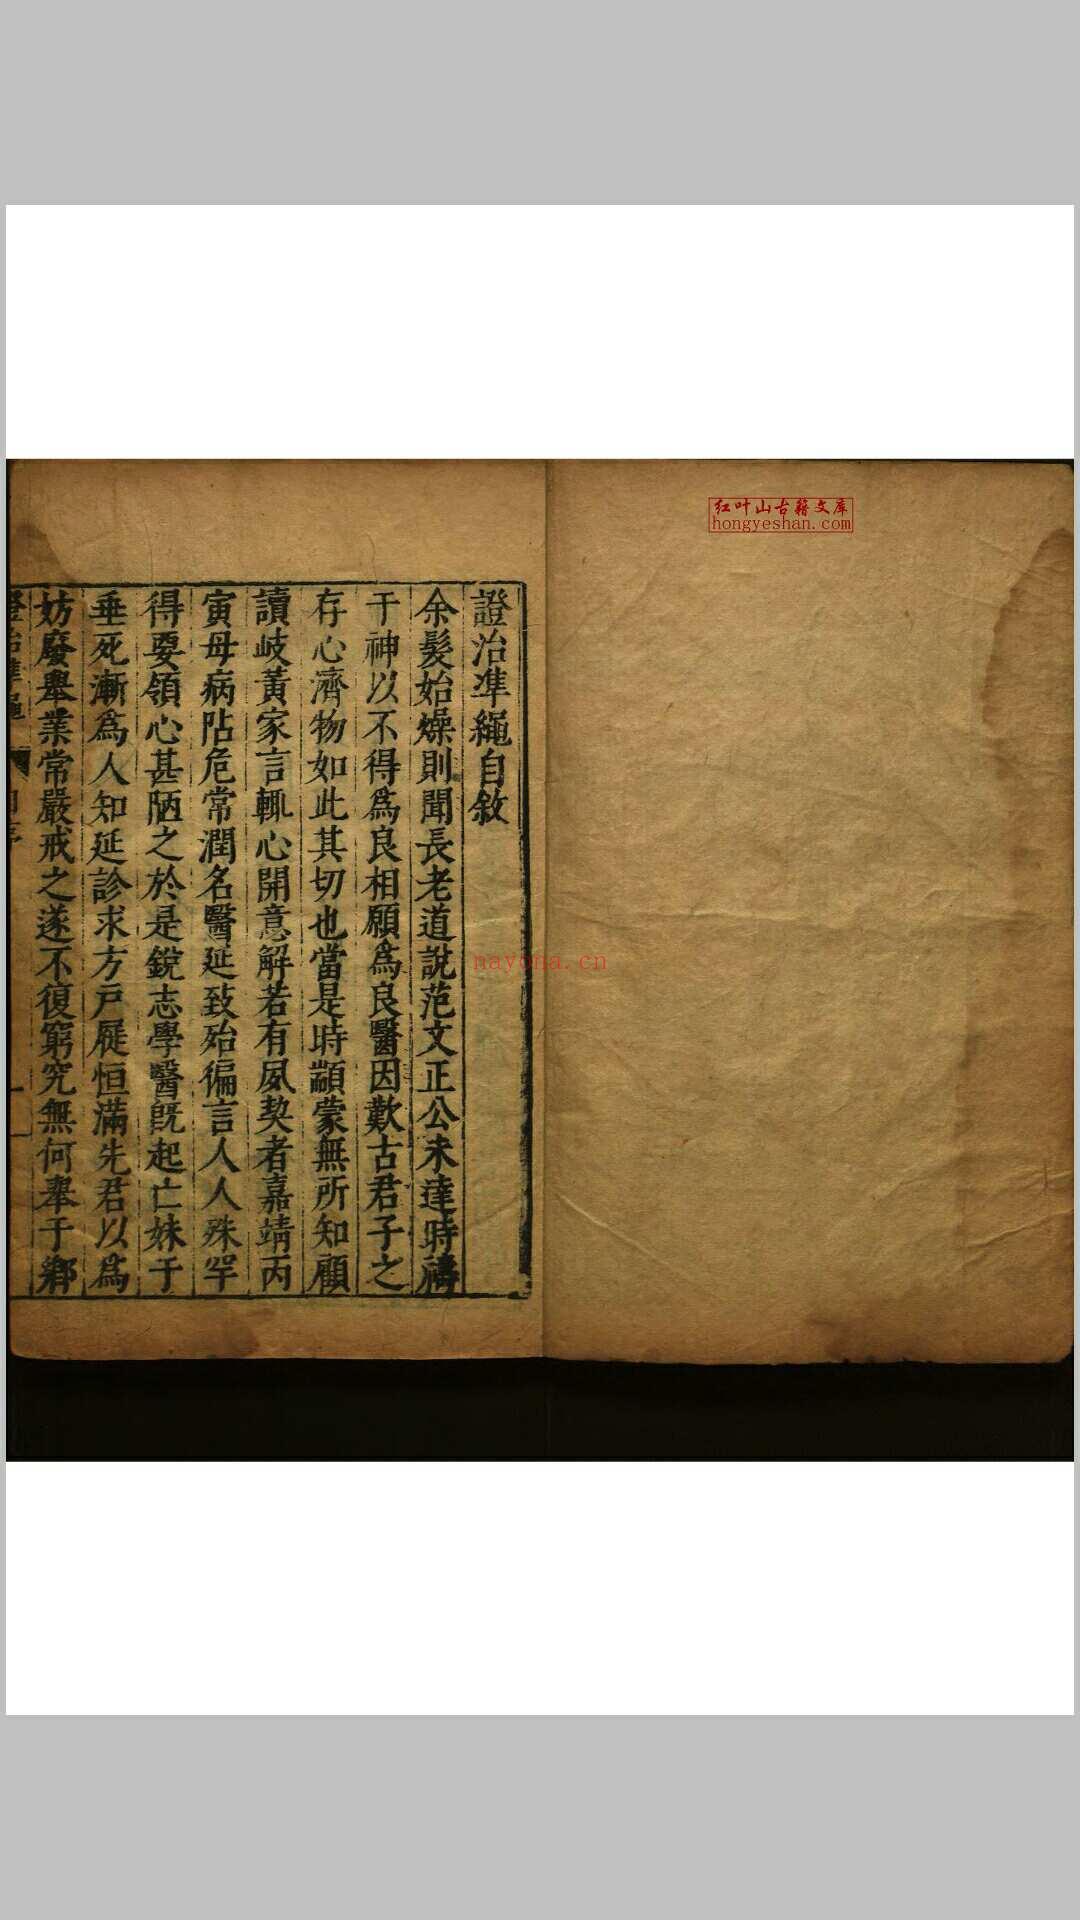 红叶山古籍文库
hongyeshan.com
nayona.cn
證治準繩自敘
余髮始燥則聞長老道說范文正公未達時禱
于神以不得為良相願為良醫因歎古君子之
存心濟物如此其切也當是時顓蒙無所知顧
讀岐黃家言輒心開意解若有夙契者嘉靖丙
寅母病阽危常潤名醫延致殆徧言人人殊罕
得要領心甚陋之於是銳志學醫旣起亡妹于
垂死漸為人知延診求方戶屨恒滿先君以為
妨廢舉業常嚴戒之遂不復窮究無何舉于鄉